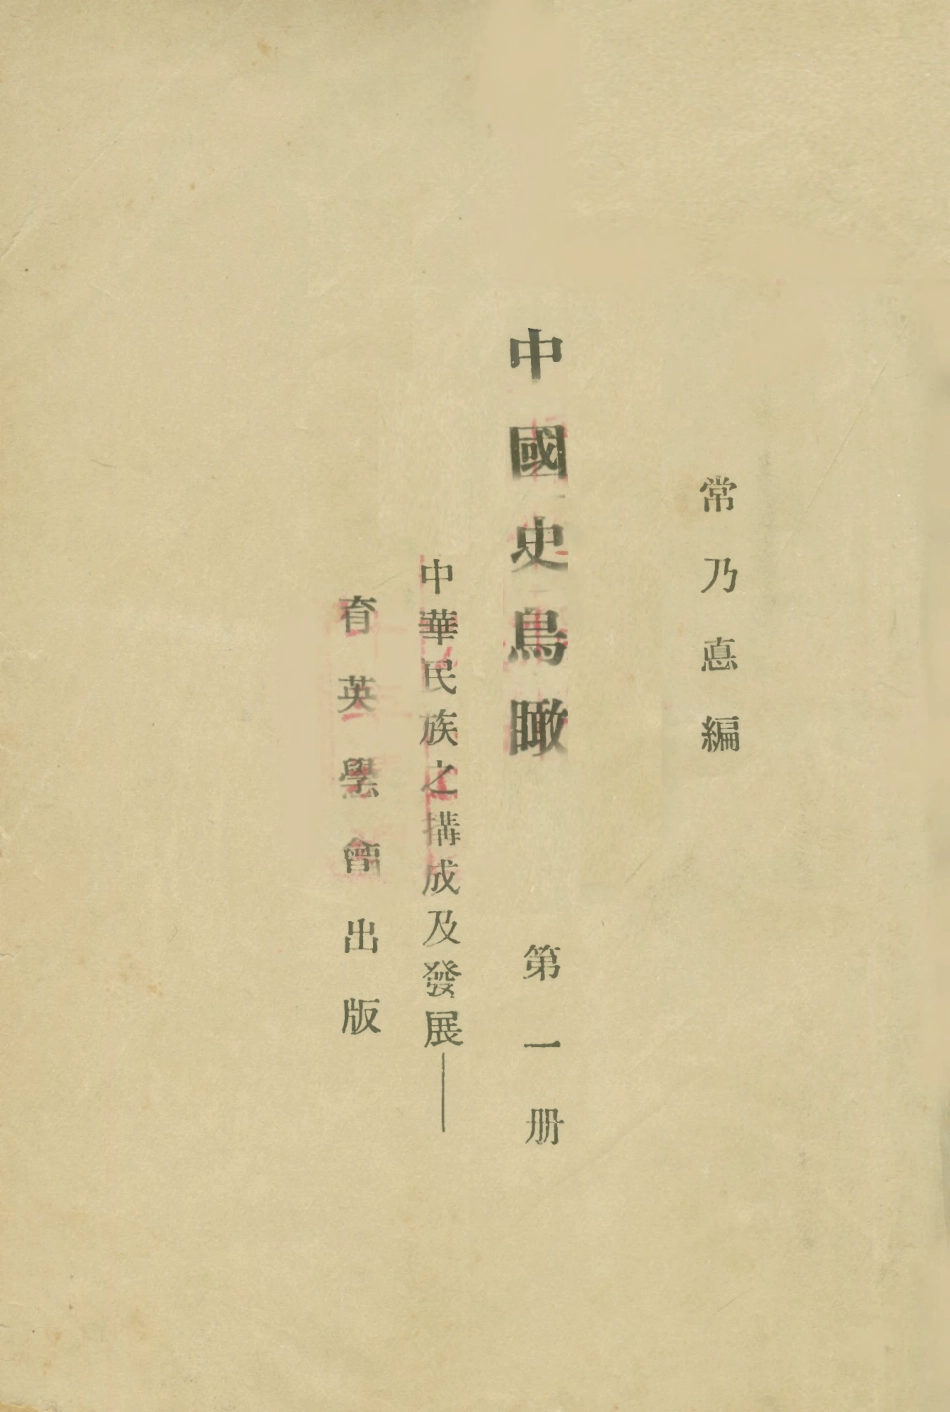 常乃悳編
中國史鳥瞰 第一册
中華民族之搆成及發展——
育英學會出版